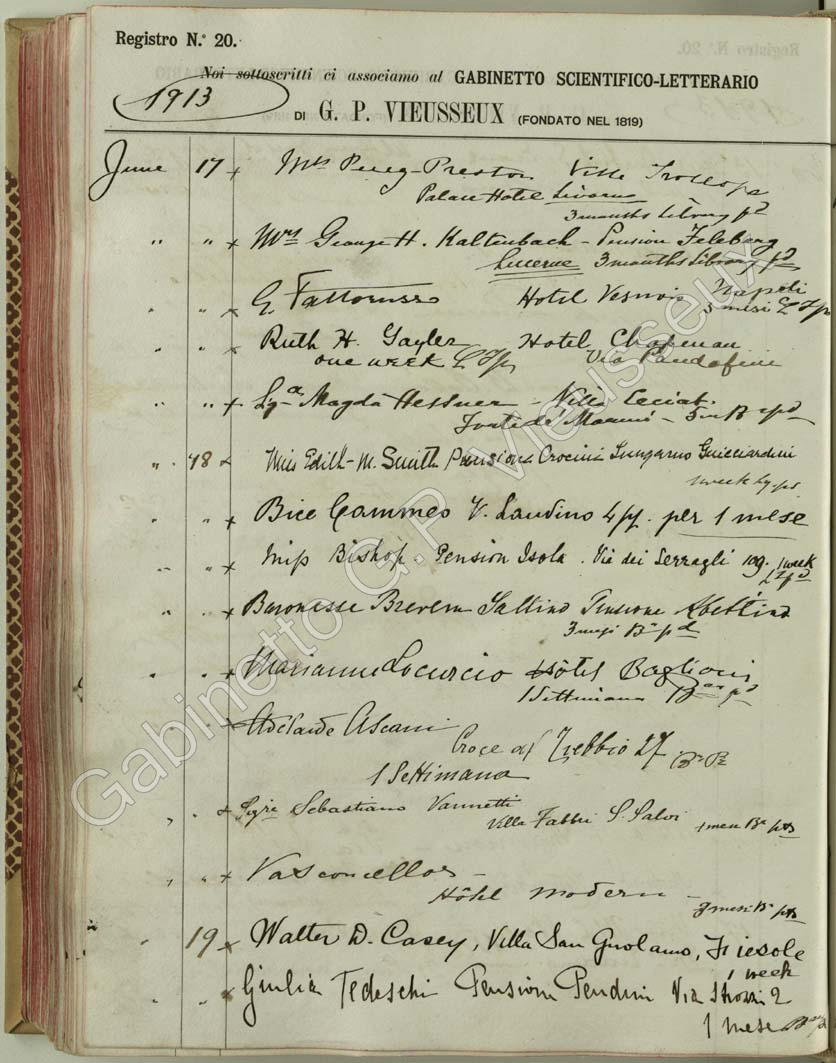 Registro N.º 20.
Noi sottoscritti ci associamo al GABINETTO SCIENTIFICO-LETTERARIO
1913
DI G. P. VIEUSSEUX (FONDATO NEL 1819)
June 17 x Preston
Palace Hotel Livorno
3 months Library pd
" " x Mrs George H. Kaltenbach - Pension Felsberg
Lucerne 3 months Library pd
" " x G. Fattorusso Hotel Vesuvio Napoli
3 mesi
" " x Ruth H. Gayler Hotel Chapman
one week Via Pandolfini
" " x Magda Hessner - Villa
" 18 x Miss Edith M. Smith Pensione Crocini Lungarno Guicciardini
1 week
" " x Bice Cammeo V. Landino 4 per 1 mese
" " x Miss Bishop. Pension Isola. Via dei Serragli 109. 1 week
" " x Baronesse Brevern Saltino Pensione Abetina
3 mesi pd
" " x Marianne Locurcio Hôtel Baglioni
1 Settimana
" " Adelaide Ascani
Croce al Trebbio
1 Settimana
" " x Sebastiano Vannetti
Villa Fabbri S. Salvi 1 mese
" " x Vasconcellos -
Hôtel modern -
" 19 x Walter D. Casey, Villa San Girolamo, Fiesole
1 week
" " x Giulia Tedeschi Pensione Pendini Via Strozzi 2
1 mese
Gabinetto G.P. Vieusseux